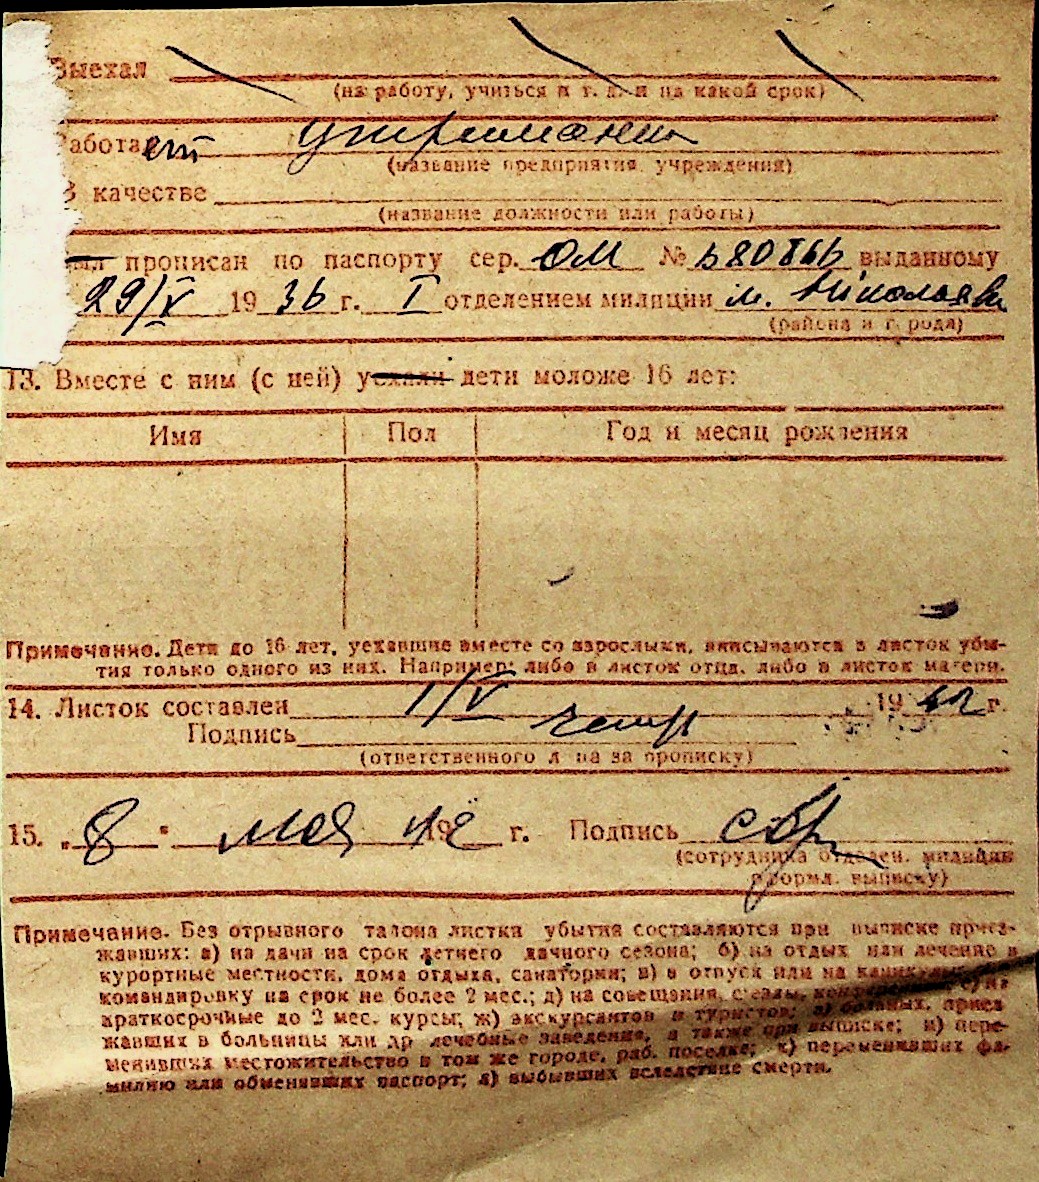 Выехал
(на работу, учиться и т. д. и на какой срок)
Работает утриманець
(название предприятия, учреждения)
В качестве
(название должности или работы)
прописан по паспорту сер. ОМ № 680866 выданному
29/V 1936 г. I отделением милиции м. Николаева
(района и города)
13. Вместе с ним (с ней) уехали дети моложе 16 лет:
Имя Пол Год и месяц рождения
Примечание. Дети до 16 лет, уехавшие вместе со взрослыми, вписываются в листок убы-
тия только одного из них. Например: либо в листок отца, либо в листок матери.
14. Листок составлен 1/V 1942 г.
Подпись
(ответственного лица за прописку)
15. „8" мая 1942 г. Подпись
(сотрудника отделен. милиции
оформл. выписку)
Примечание. Без отрывного талона листки убытия составляются при выписке приез-
жавших: а) на дачи на срок летнего дачного сезона; б) на отдых или лечение в
курортные местности, дома отдыха, санатории; в) в отпуск или на каникулы;
командировку на срок не более 2 мес.; д) на совещания, съезды, конференции; е) на
краткосрочные до 2 мес. курсы; ж) экскурсантов и туристов; з) больных, приез-
жавших в больницы или др лечебные заведения, а также при выписке; и) пере-
менивших местожительство в том же городе, раб. поселке; к) переменивших фа-
милию или обменявших паспорт; л) выбывших вследствие смерти.